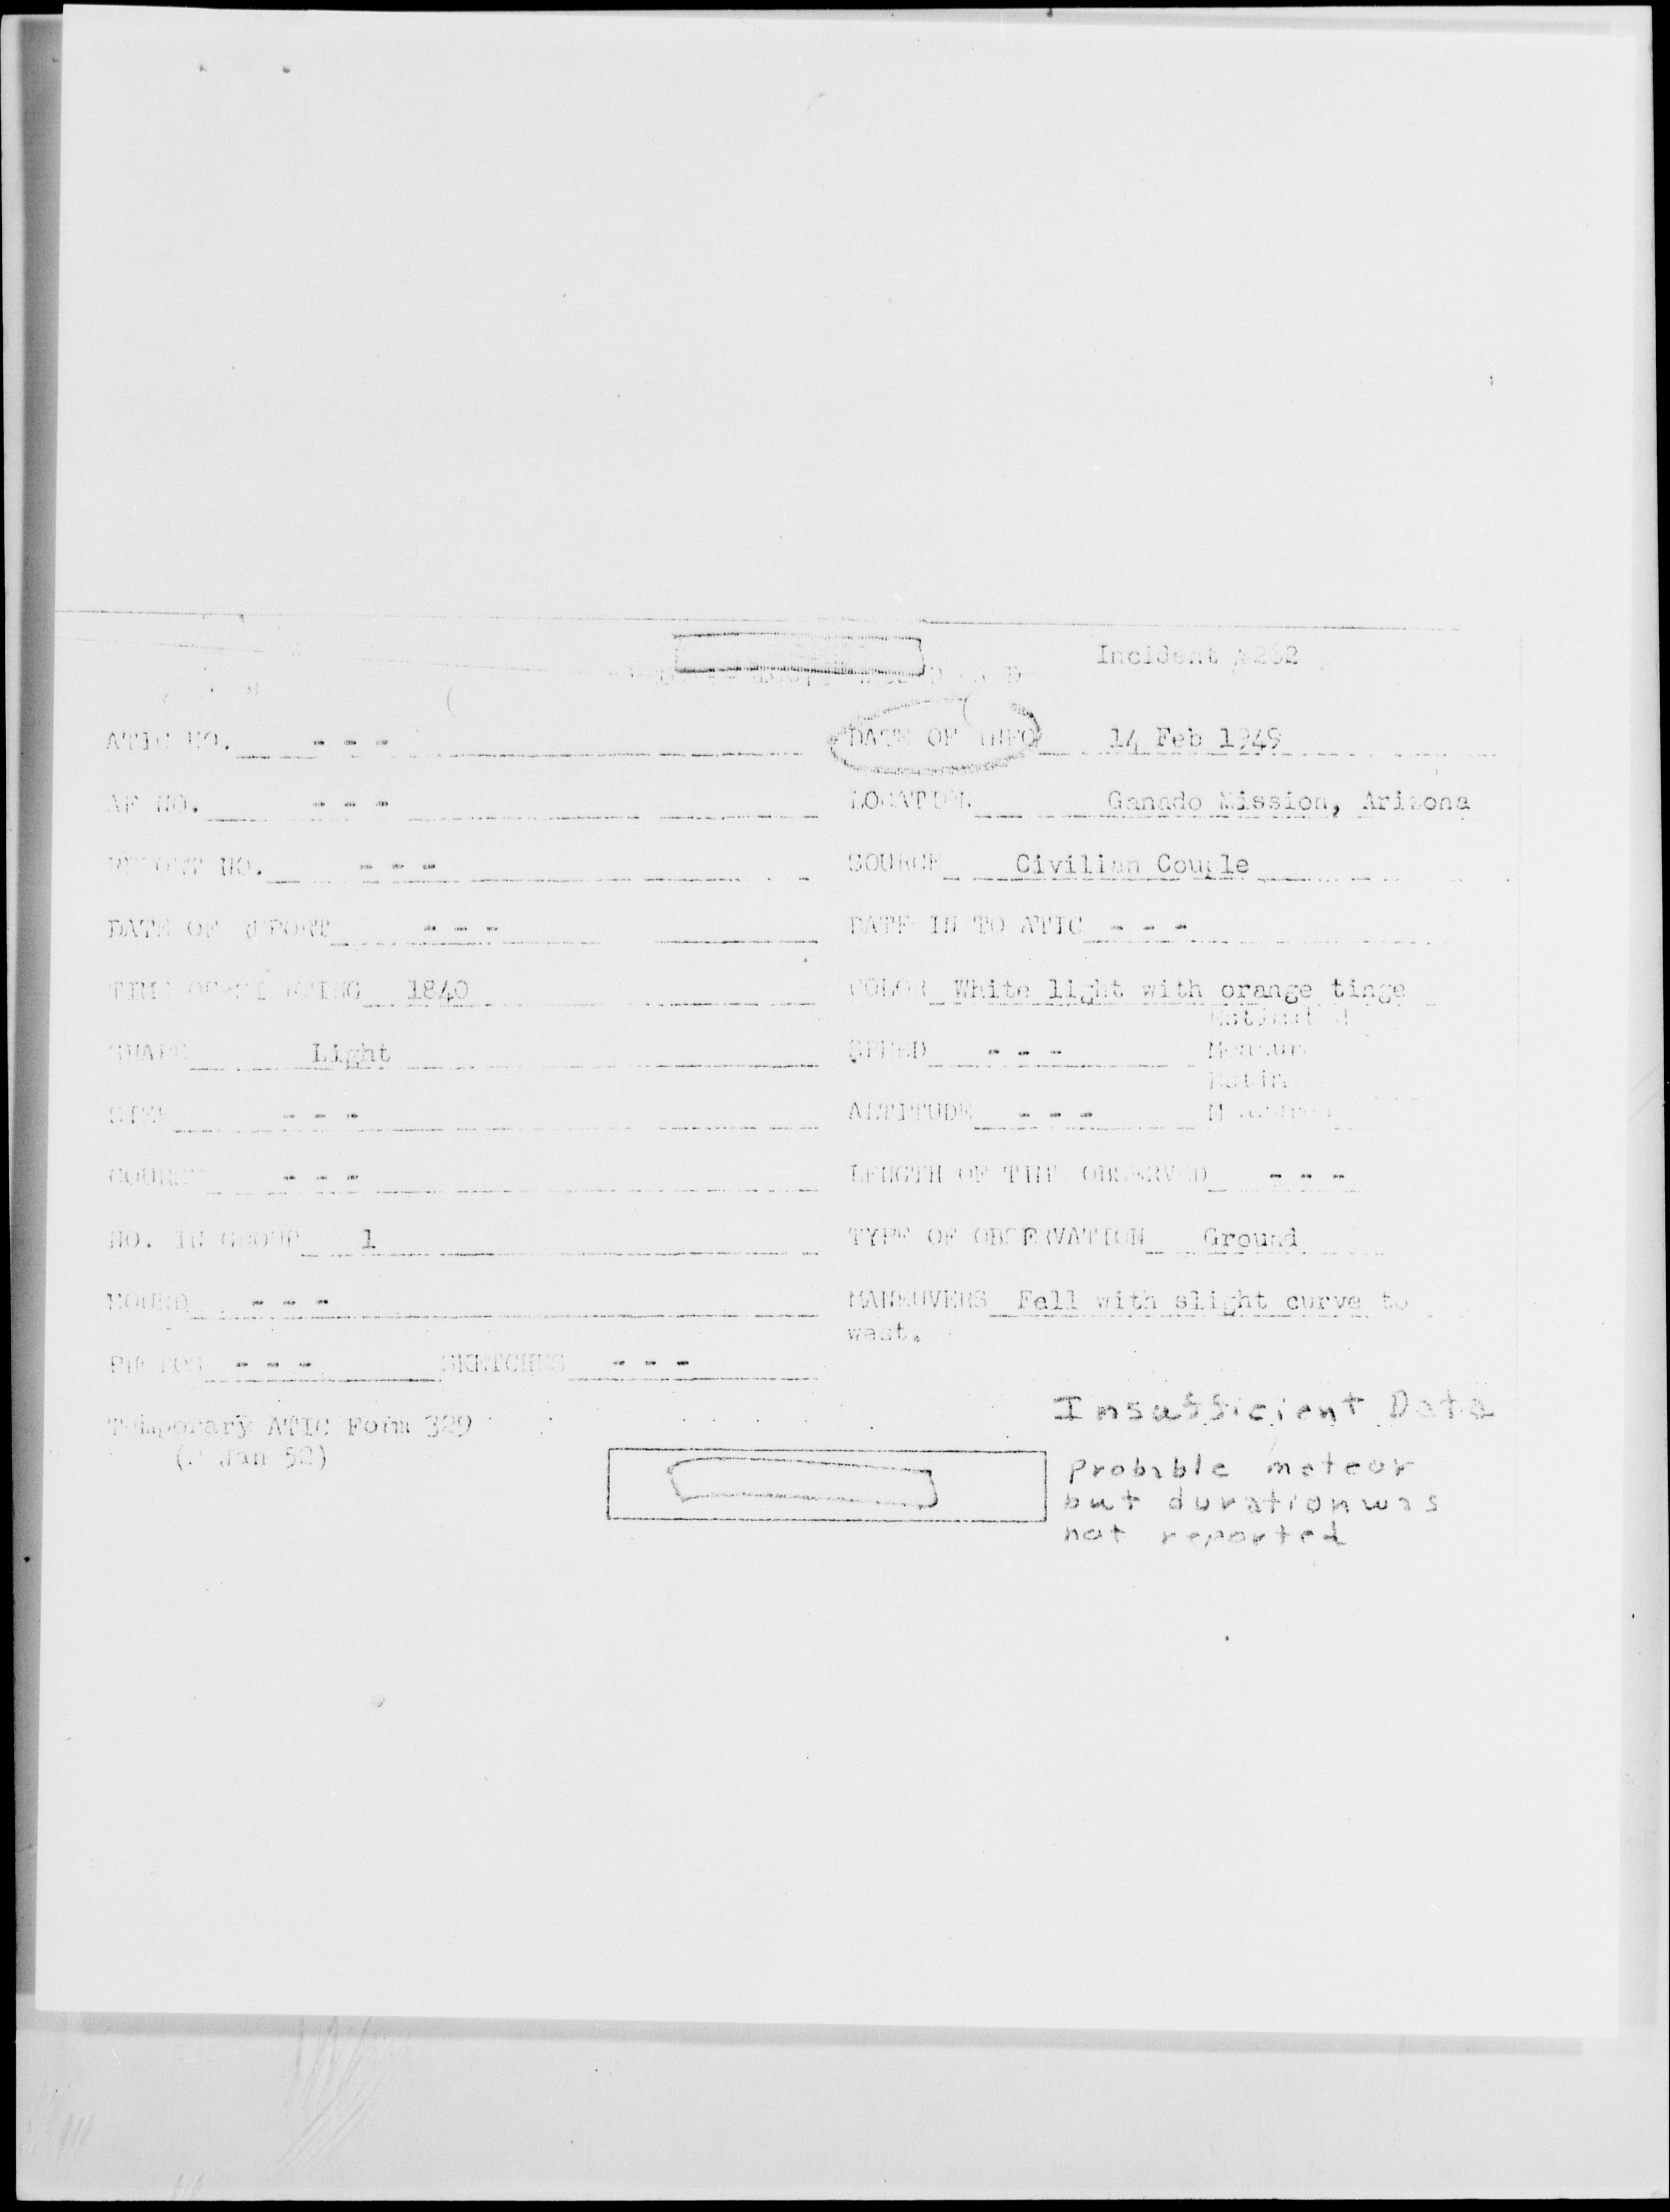 Incident
ATIC NO. - - - DATE OF INFO 14 Feb 1949
AF NO. - - - LOCATION Ganado Mission, Arizona
REPORT NO. - - - SOURCE Civilian Couple
DATE OF REPORT - - - DATE IN TO ATIC - - -
TIME OF SIGHTING 1840 COLOR White light with orange tinge
SHAPE Light SPEED - - -
SIZE - - - ALTITUDE - - -
COURSE - - - LENGTH OF TIME OBSERVED - - -
NO. IN GROUP 1 TYPE OF OBSERVATION Ground
SOUND - - - MANEUVERS Fell with slight curve to
west.
PHOTOS - - - SKETCHES - - -
Temporary ATIC Form 329
Jan 52)
Insufficient Data
Probable meteor
but duration was
not reported